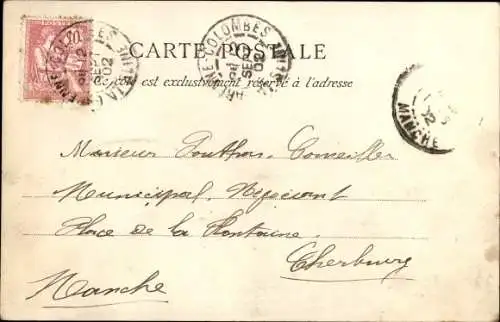 CARTE POSTALE
Ce côté est exclusivement réservé à l'adresse
LA GARENNE-COLOMBES
SEINE
SEPT
02
MANCHE
Monsieur Conseiller
Municipal, Négociant
Place de la Fontaine
Cherbourg
Manche